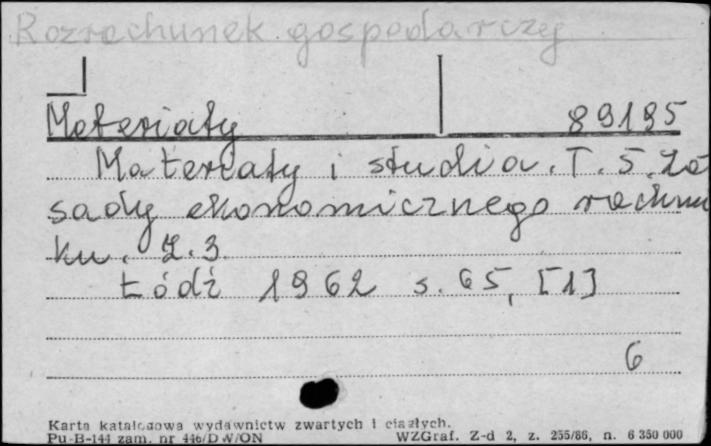 Rozrachunek gospodarczy
Materiały 89195
Materiały i studia. T. 5. Za
sady ekonomicznego rachun
ku. Z. 3.
Łódź 1962 s. 65, [1]
6
Karta katalogowa wydawnictw zwartych i ciągłych.
Pu-B-144 zam. nr 446/DW/ON WZGraf. Z-d 2, z. 255/86, n. 6 350 000